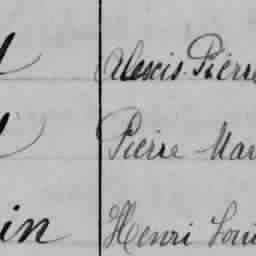 Alexis Pierre
Pierre Mar
in Henri Loui